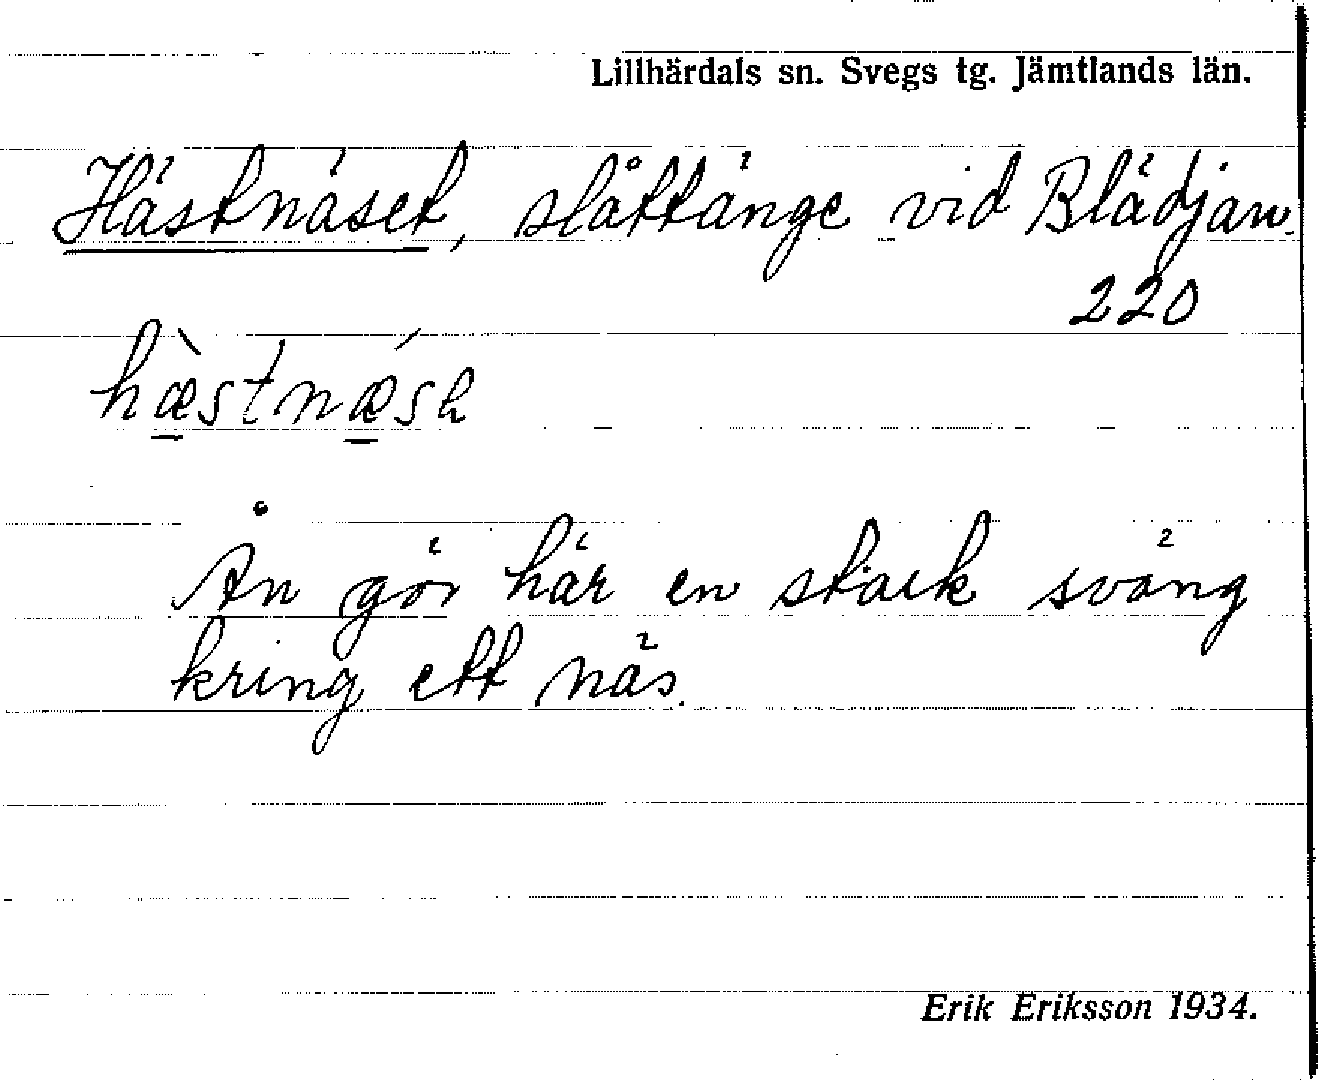 Lillhärdals sn. Svegs tg. Jämtlands län.
Hästnäset, slåttänge vid Blädjan.
220
hæ̀stnǽsə
Ån gör här en stark sväng
kring ett näs.
Erik Eriksson 1934.